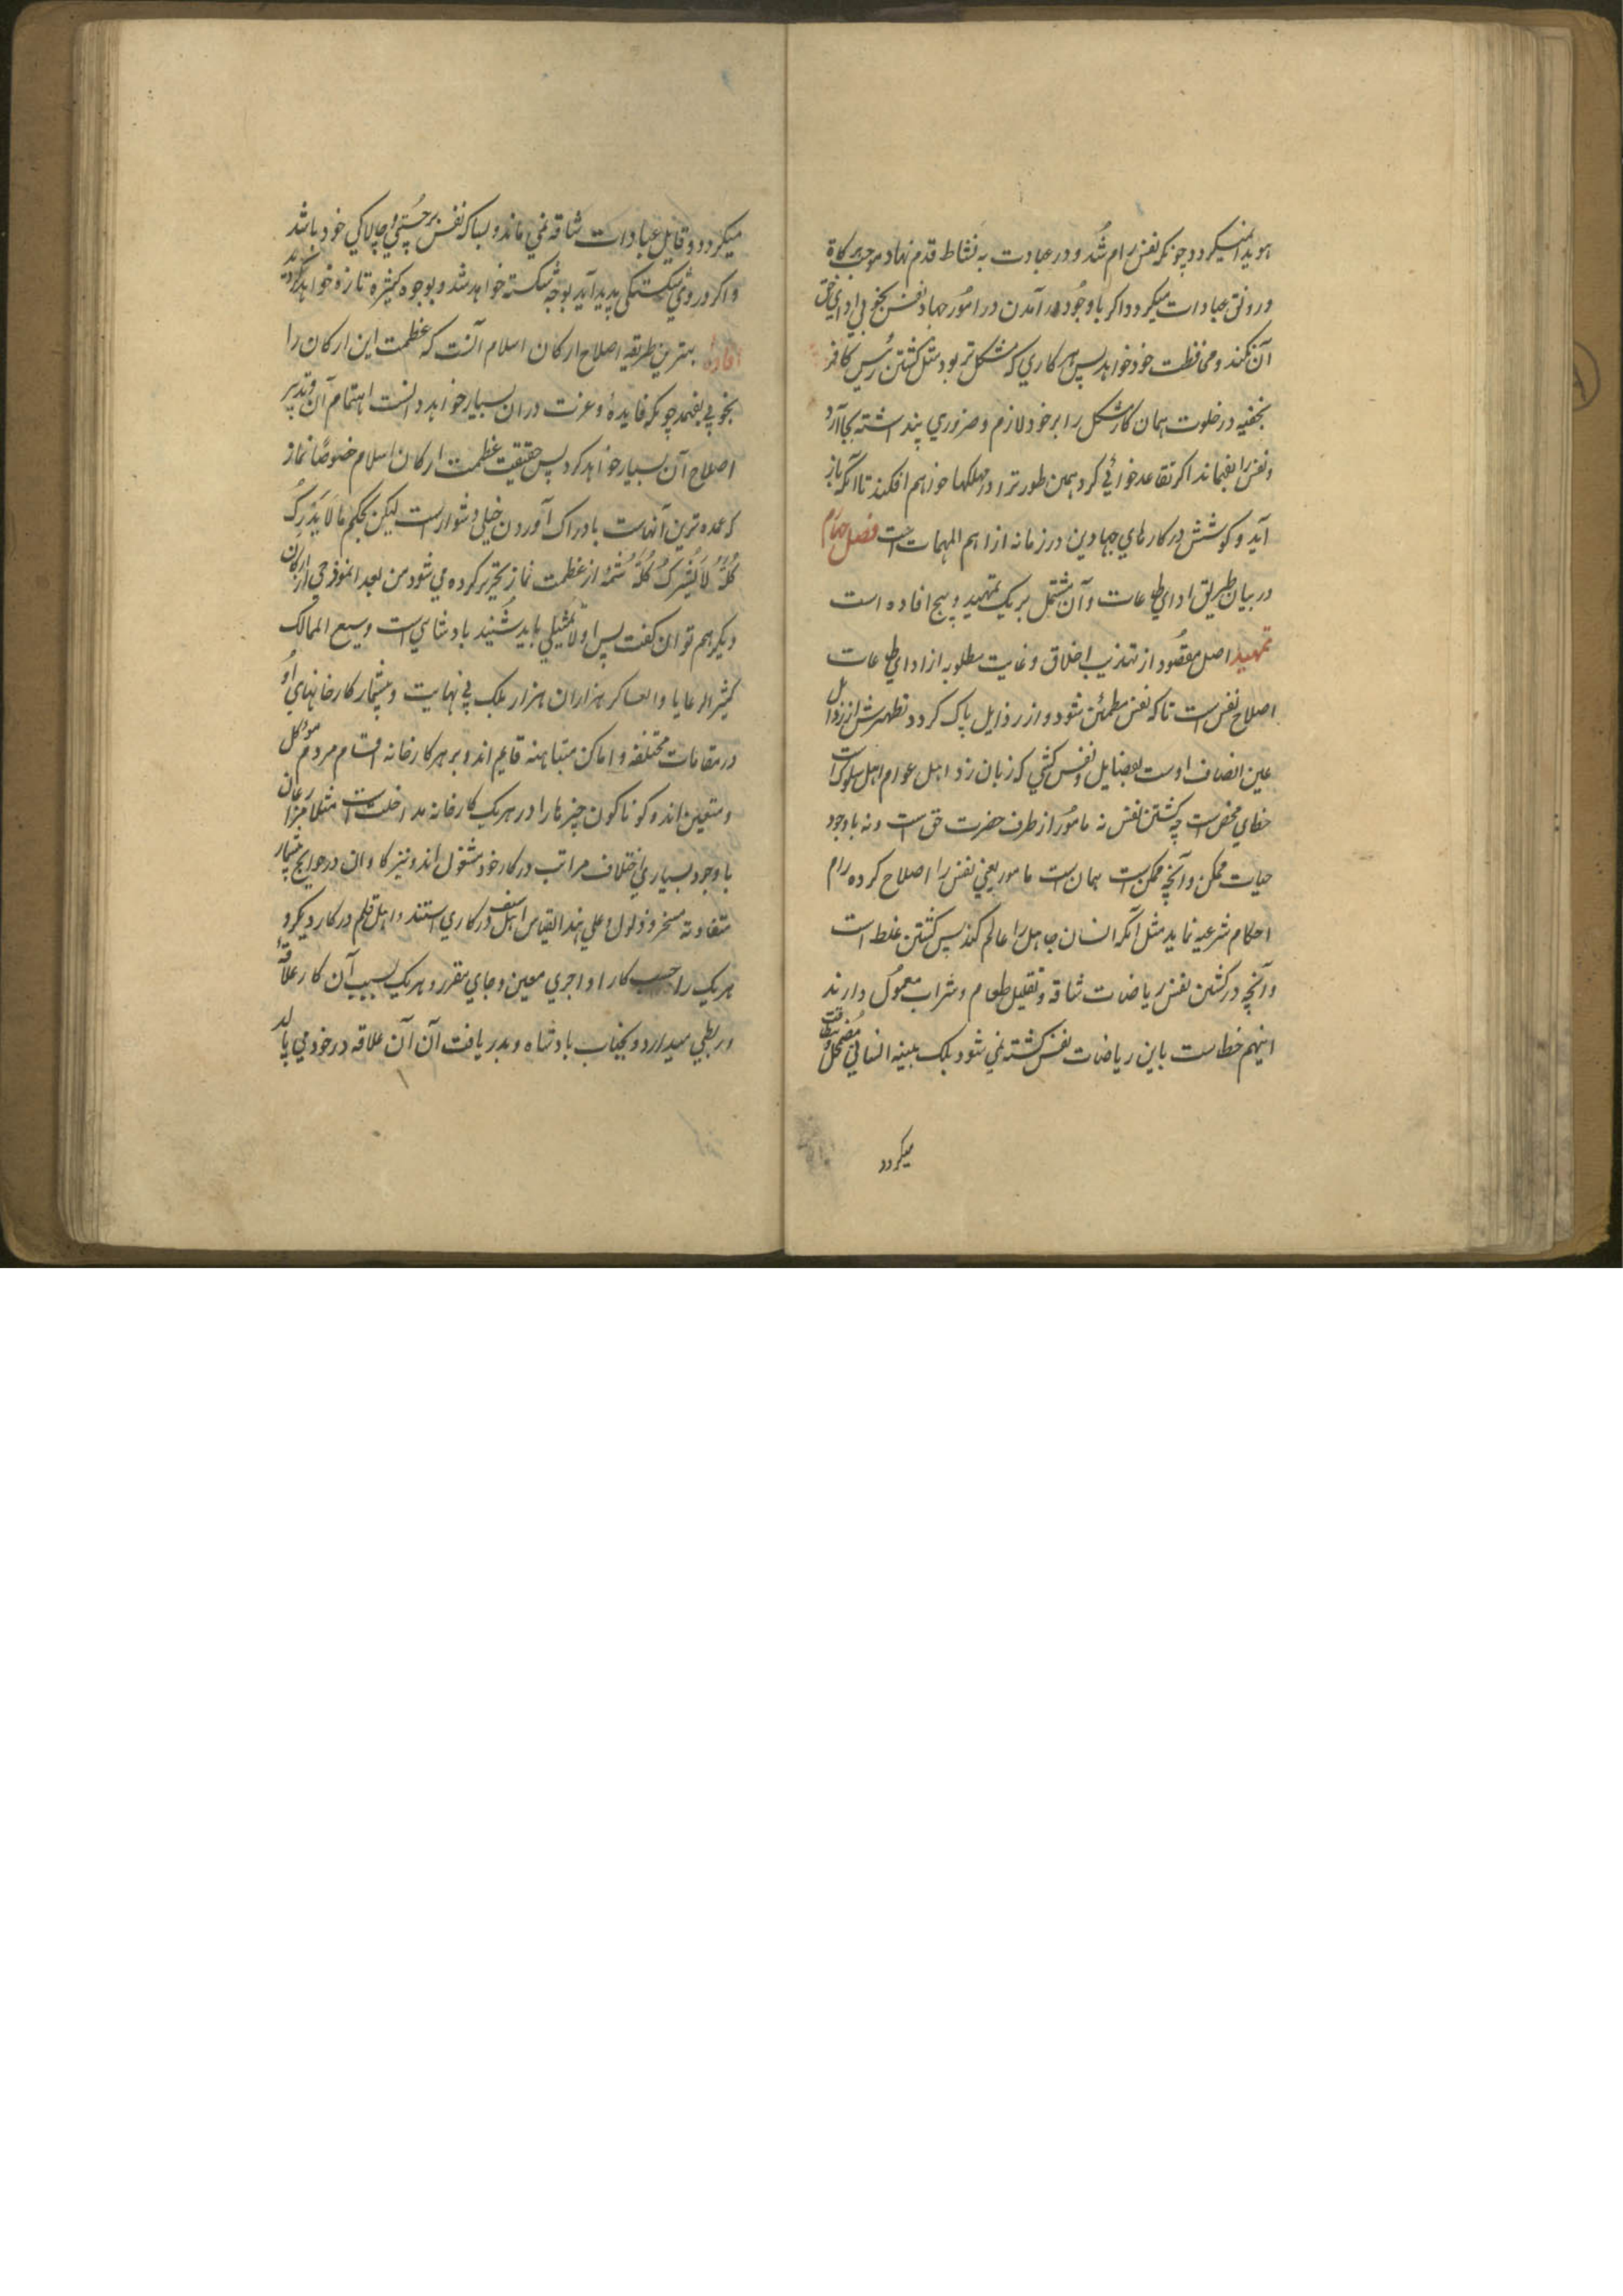 هویدا نمیکردد چونکه نفس رام شد و در عبادت به نشاط قدم نهاد موجب برکاة
و رونق عبادات میکردد اکر باوجود در آمدن در امور جهاد نفس بخوبی ادای حق
آن نکند و محافظت خود خواهد پس هر کاری که مشکل تر بود مثل کشتن رئیس کافر
بخفیه در خلوت همان کار مشکل را بر خود لازم و ضروری پنداشته بجا آرد
و نفس را بفهماند اکر تقاعد خواهی کرد همین طور ترا در مهلکها خواهم افکند تا آنکه باز
آید و کوشش در کارهای جهاد دین درزمانه از اهم المهمات است فصل چهارم
در بیان طریق ادای طاعات و آن مشتمل بر یک تمهید و پنج افاده است
تمهید اصل مقصود از تهذیب اخلاق و غایت مطلوبه از ادای طاعات
اصلاح نفس است تا که نفس مطمئن شود و از رذایل پاک کردد تطهیرش از رذایل
عین اتصاف اوست بفضایل و نفس کشی که زبان زد اهل عوام اهل سلوک است
خطای محض است چه کشتن نفس نه مامور از طرف حضرت حق است و نه باوجود
حیات ممکن و آنچه ممکن است همان است مامور یعنی نفس را اصلاح کرده رام
احکام شرعیه نماید مثل آنکه انسان جاهل را عالم کند پس کشتن غلط است
و آنچه در کشتن نفس ریاضات شاقه و تقلیل طعام و شراب معمول دارند
اینهم خطاست باین ریاضات نفس کشته نمی شود بلکه بنیه انسانی مضمحل و بیطاقت
میکردد
میکردد و قابل عبادات شاقه نمی ماند و بسا که نفس بر چستی و چالاکی خود باشد
و اکر در وی شکستکی پدید آید بوجه شکسته خواهد شد و بوجوه کثیره تازه خواهد کردید
افاده بهترین طریقه اصلاح ارکان اسلام آنست که عظمت این ارکان را
بخوبی بفهمد چونکه فایده و عزت دران بسیار خواهد دانست اهتمام آن و تدبیر
اصلاح آن بسیار خواهد کرد پس حقیقت عظمت ارکان اسلام خصوصًا نماز
که عمده ترین آنهاست بادراک آوردن خیلی دشوار است لیکن بحکم ما لا یدرک
کله لا یترک کله شمهٔ از عظمت نماز تحریر کرده می شود من بعد انموذجی از ارکان
دیکر هم توان کفت پس اولا تمثیلی باید شنید بادشاهی است وسیع الممالک
کثیر الرعایا و العساکر هزاران هزار بلکه بی نهایت و بیشمار کارخانهای او
در مقامات مختلفه و اماکن متباینه قایم اند و بر هر کارخانه اقسام مردم موکل
و متعین اند و کوناکون چیزها را در هر یک کارخانه مداخلت است مثلا مزارعان
باوجود بسیاری اختلاف مراتب در کار خود مشغول اند و نیز کاوان در حوایج بیشمار
متفاوته مسخر و ذلول و علی هذا القیاس اهل سیف در کاری استند و اهل قلم در کار دیکر و
هر یک را حسب کار او اجری معین و جای مقرر و هر یک بسبب آن کار علاقهٔ
و ربطی میدارد و بجناب بادشاه و بدریافت آن آن علاقه در خود می بالد